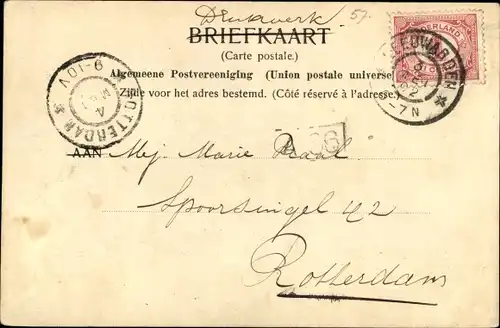 Drukwerk.
57.
BRIEFKAART
(Carte postale.)
Algemeene Postvereeniging (Union postale universe
Zijde voor het adres bestemd. (Côté réservé à l'adresse.)
NEDERLAND
LEEUWARDEN
5-7N
ROTTERDAM
4
9-10V
AAN Mej. Marie Kraal
Spoorsingel 42
Rotterdam